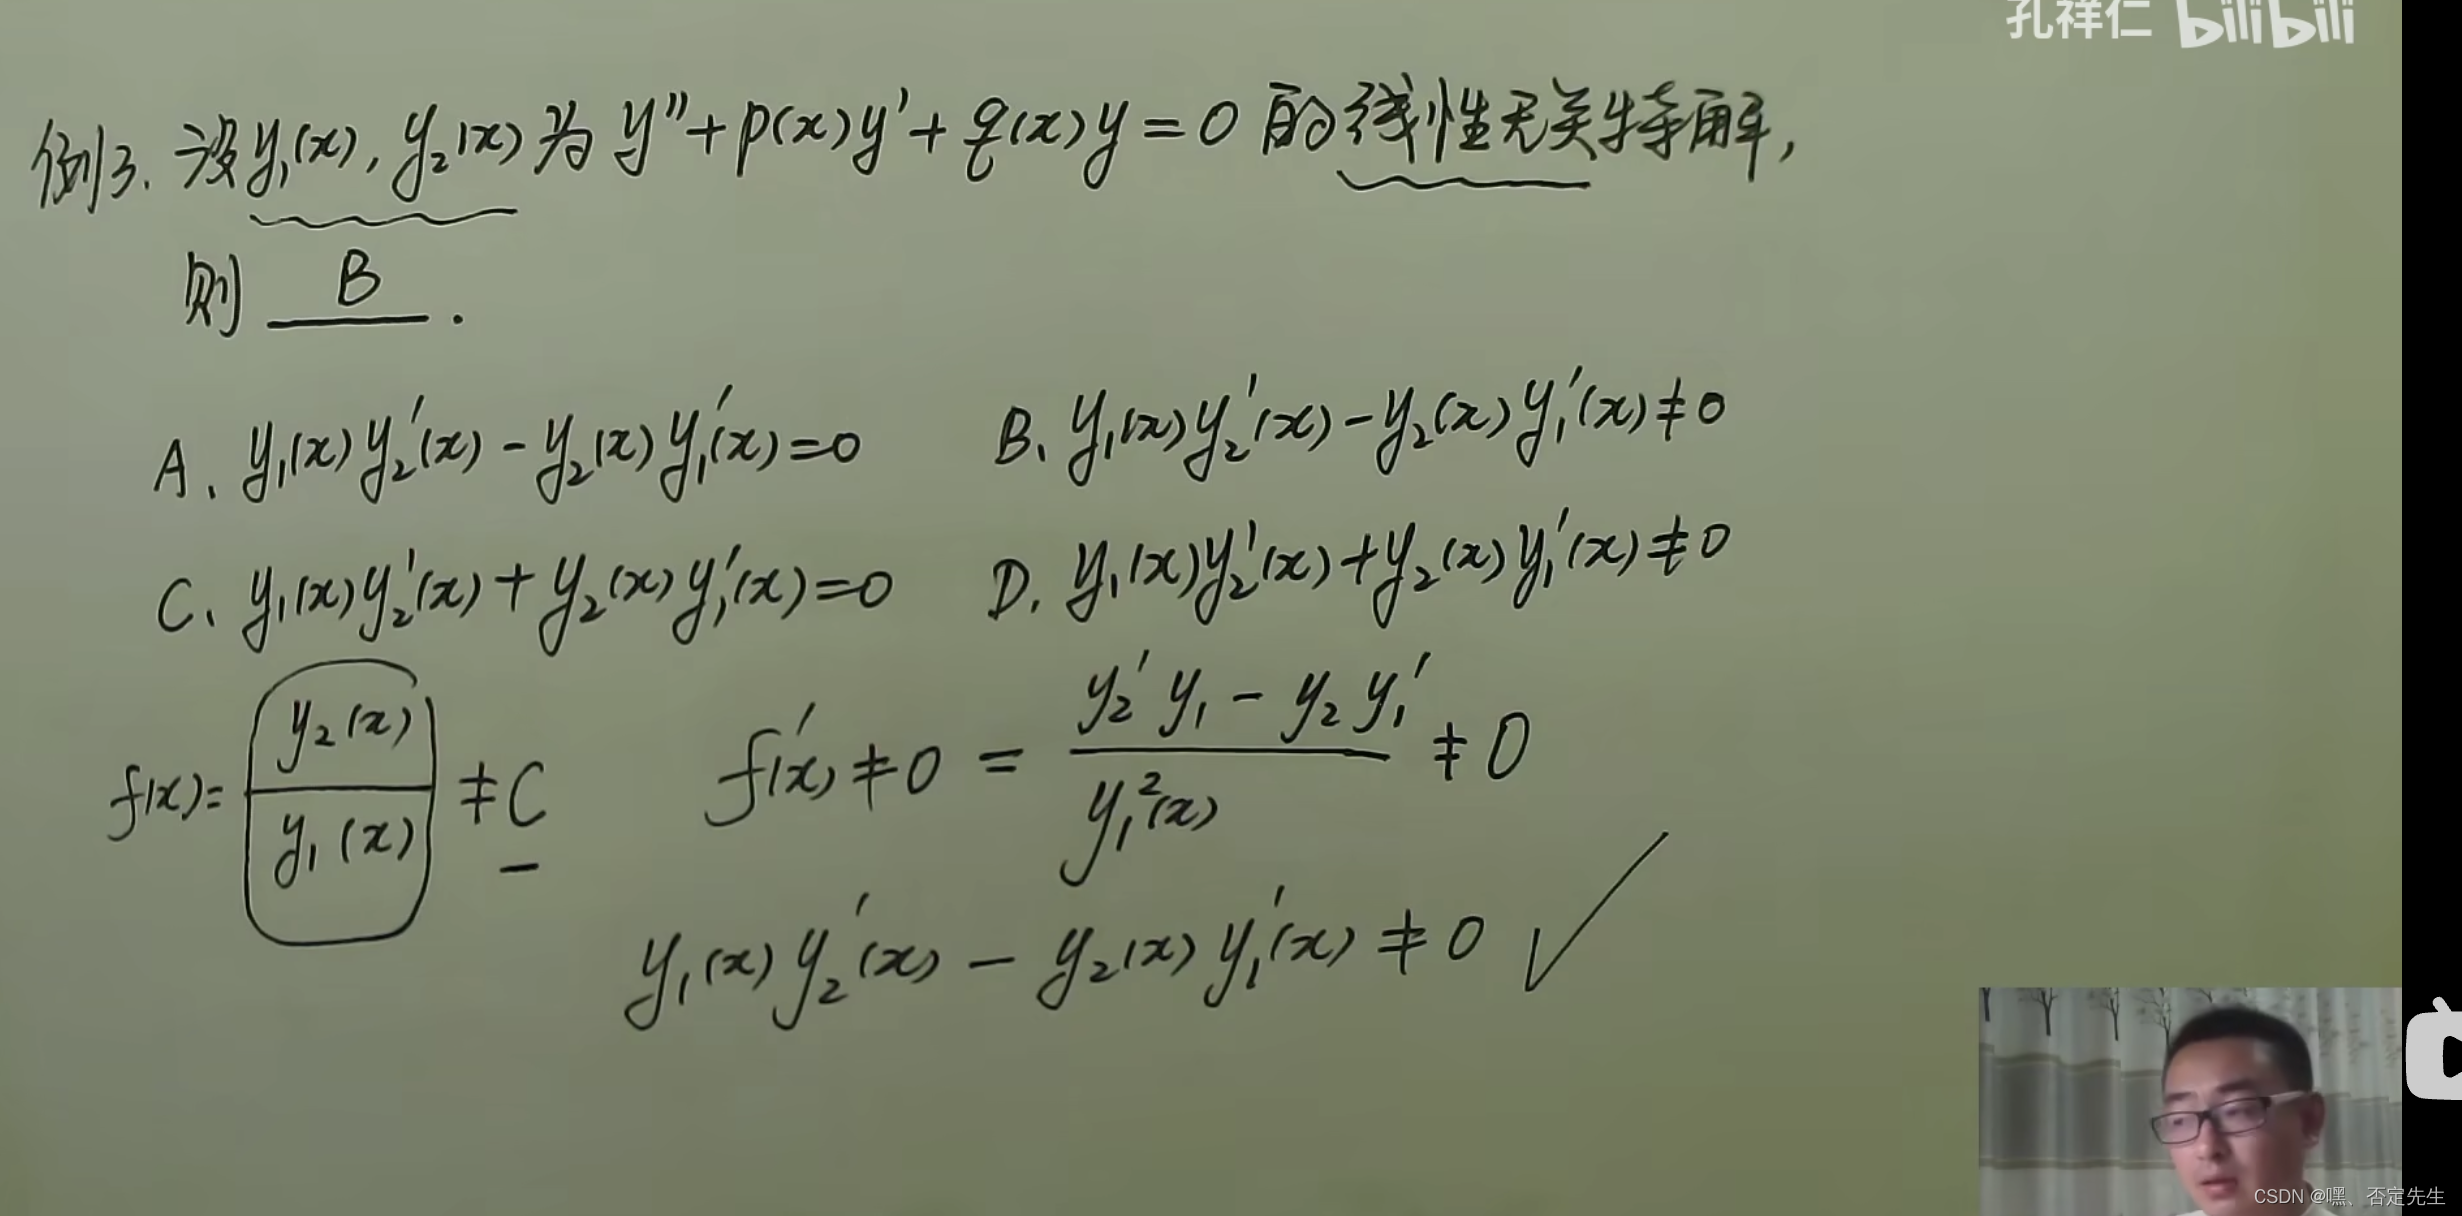 孔祥仁 bilibili
例3. 设y₁(x), y₂(x)为 y''+p(x)y'+q(x)y=0 的线性无关特解,
则 B .
A. y₁(x)y₂'(x)-y₂(x)y₁'(x)=0 B. y₁(x)y₂'(x)-y₂(x)y₁'(x)≠0
C. y₁(x)y₂'(x)+y₂(x)y₁'(x)=0 D. y₁(x)y₂'(x)+y₂(x)y₁'(x)≠0
f(x)= y₂(x)/y₁(x) ≠C f'(x)≠0 = (y₂'y₁-y₂y₁')/y₁²(x) ≠0
y₁(x)y₂'(x)-y₂(x)y₁'(x)≠0 √
CSDN @嘿、否定先生